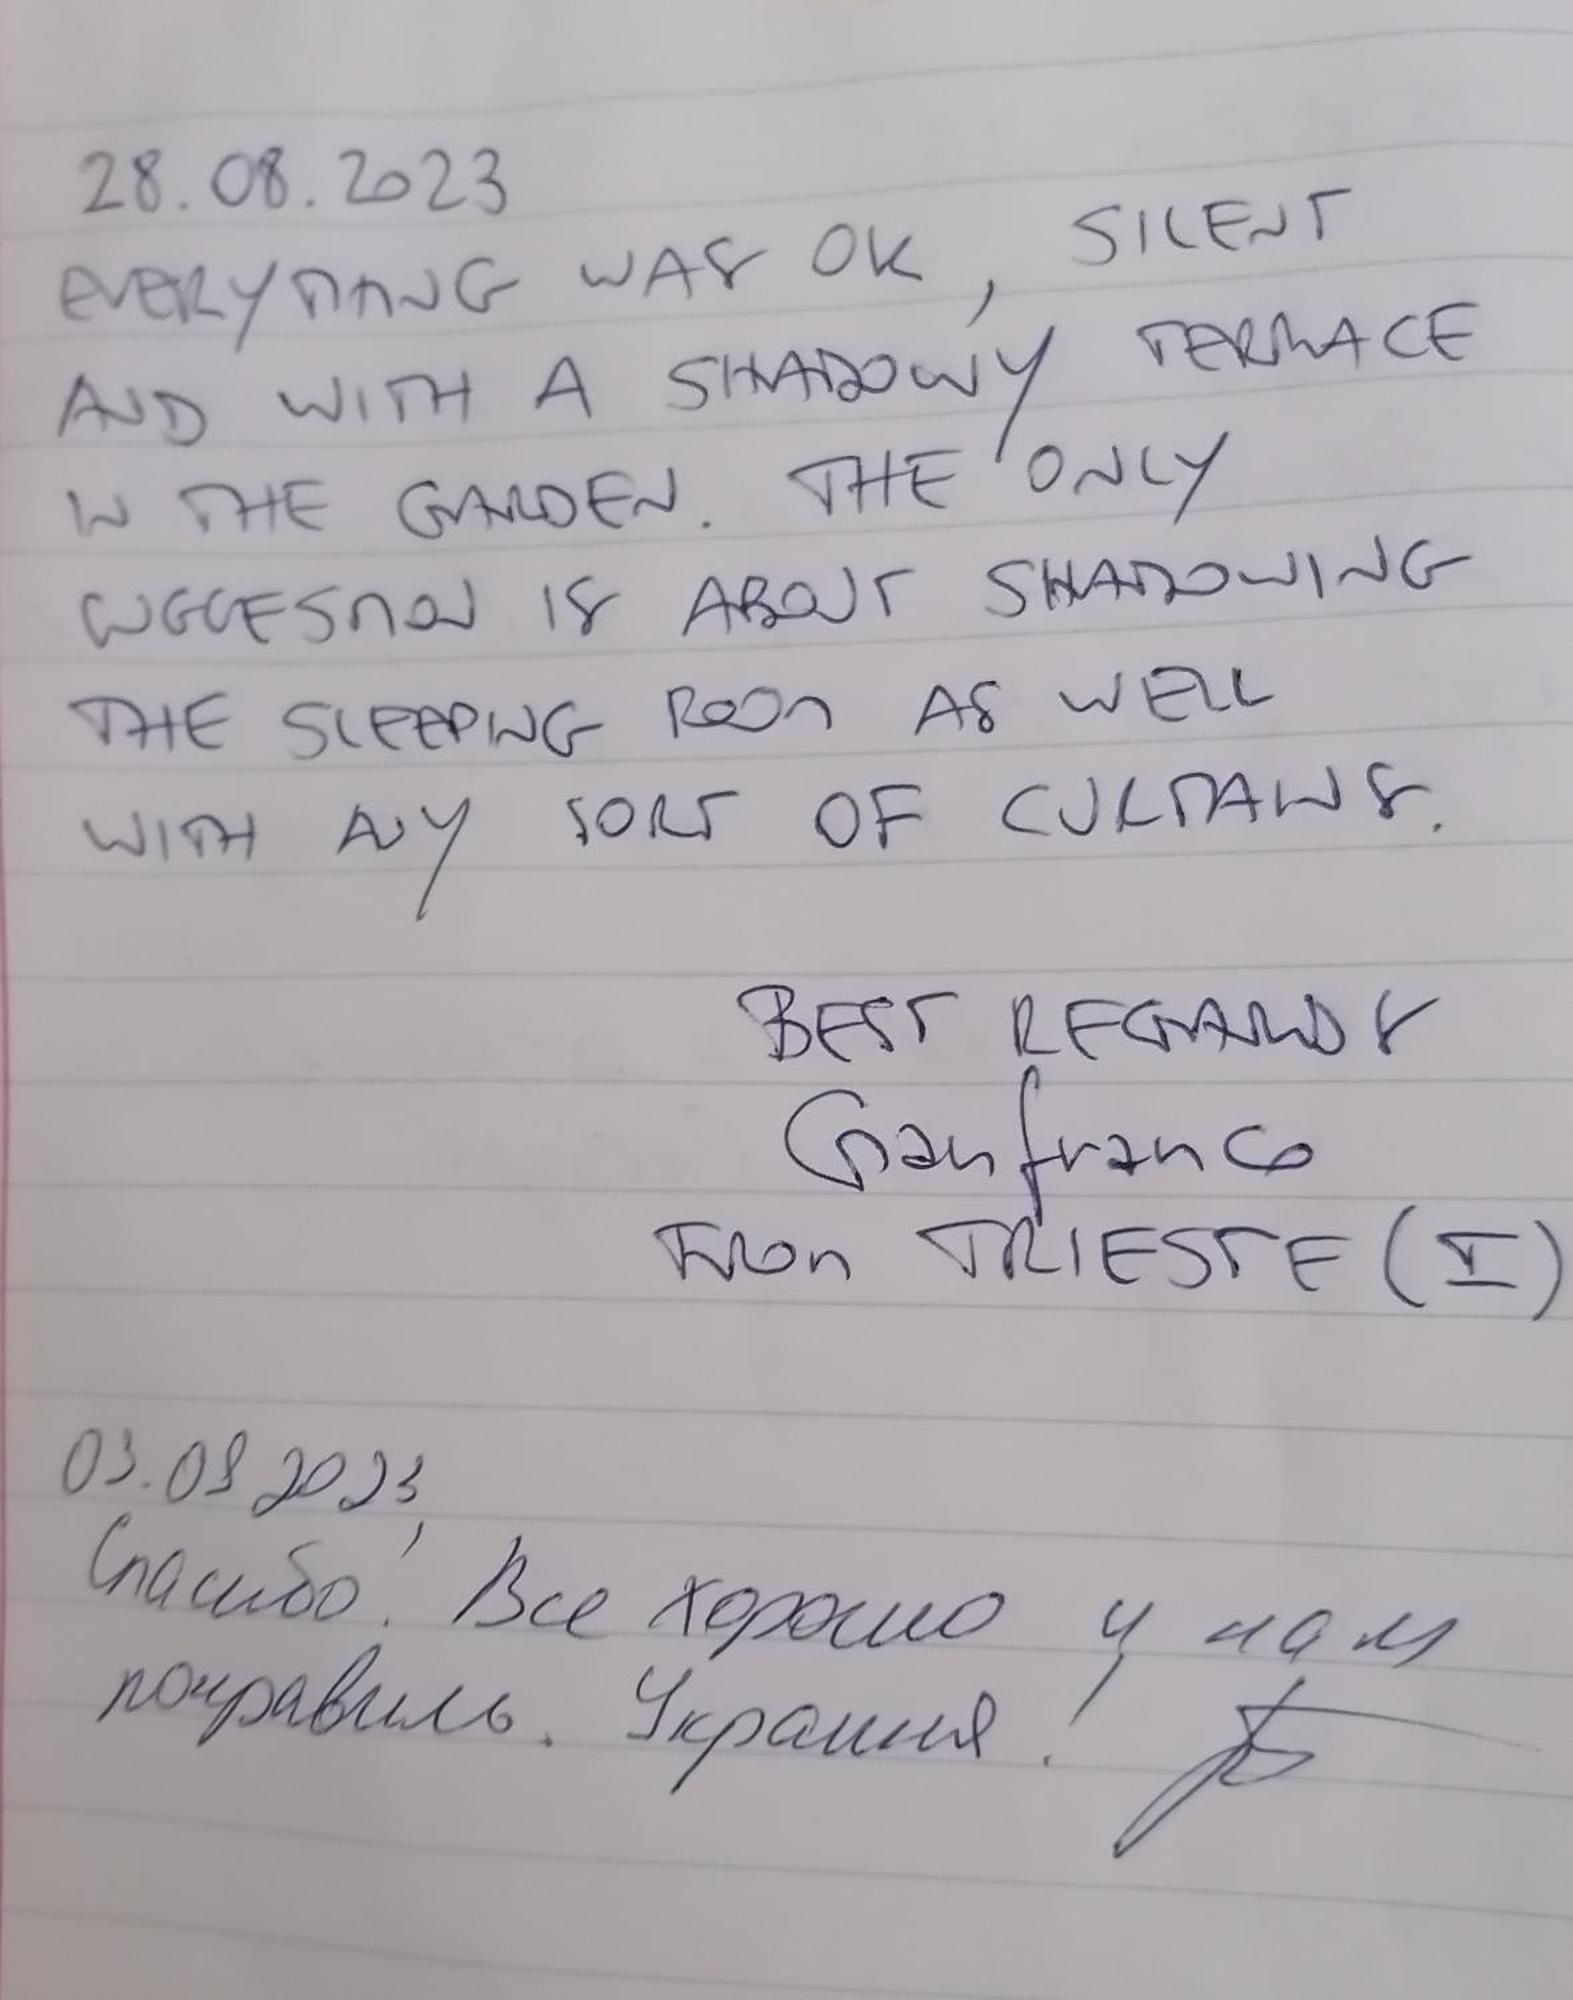 28.08.2023
EVERYTHING WAS OK, SILENT
AND WITH A SHADOWY TERRACE
IN THE GARDEN. THE ONLY
SUGGESTION IS ABOUT SHADOWING
THE SLEEPING ROOM AS WELL
WITH ANY SORT OF CURTAINS.
BEST REGARDS
Gianfranco
FROM TRIESTE (I)
03.09 2023
Спасибо! Все хорошо и нам
понравилось. Украина!